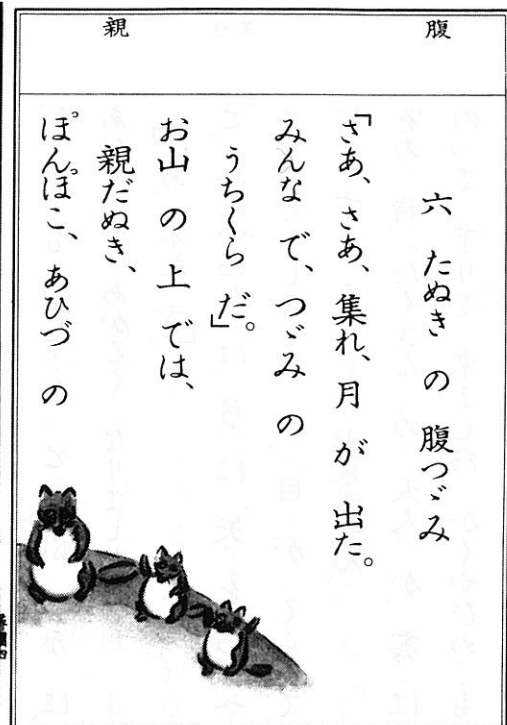 腹
親
六 たぬき の 腹つゞみ
「さあ、さあ、集れ、月 が 出た。
みんな で、つゞみ の
うちくら だ。」
お山 の 上 では、
親だぬき、
ぽんぽこ、あひづ の